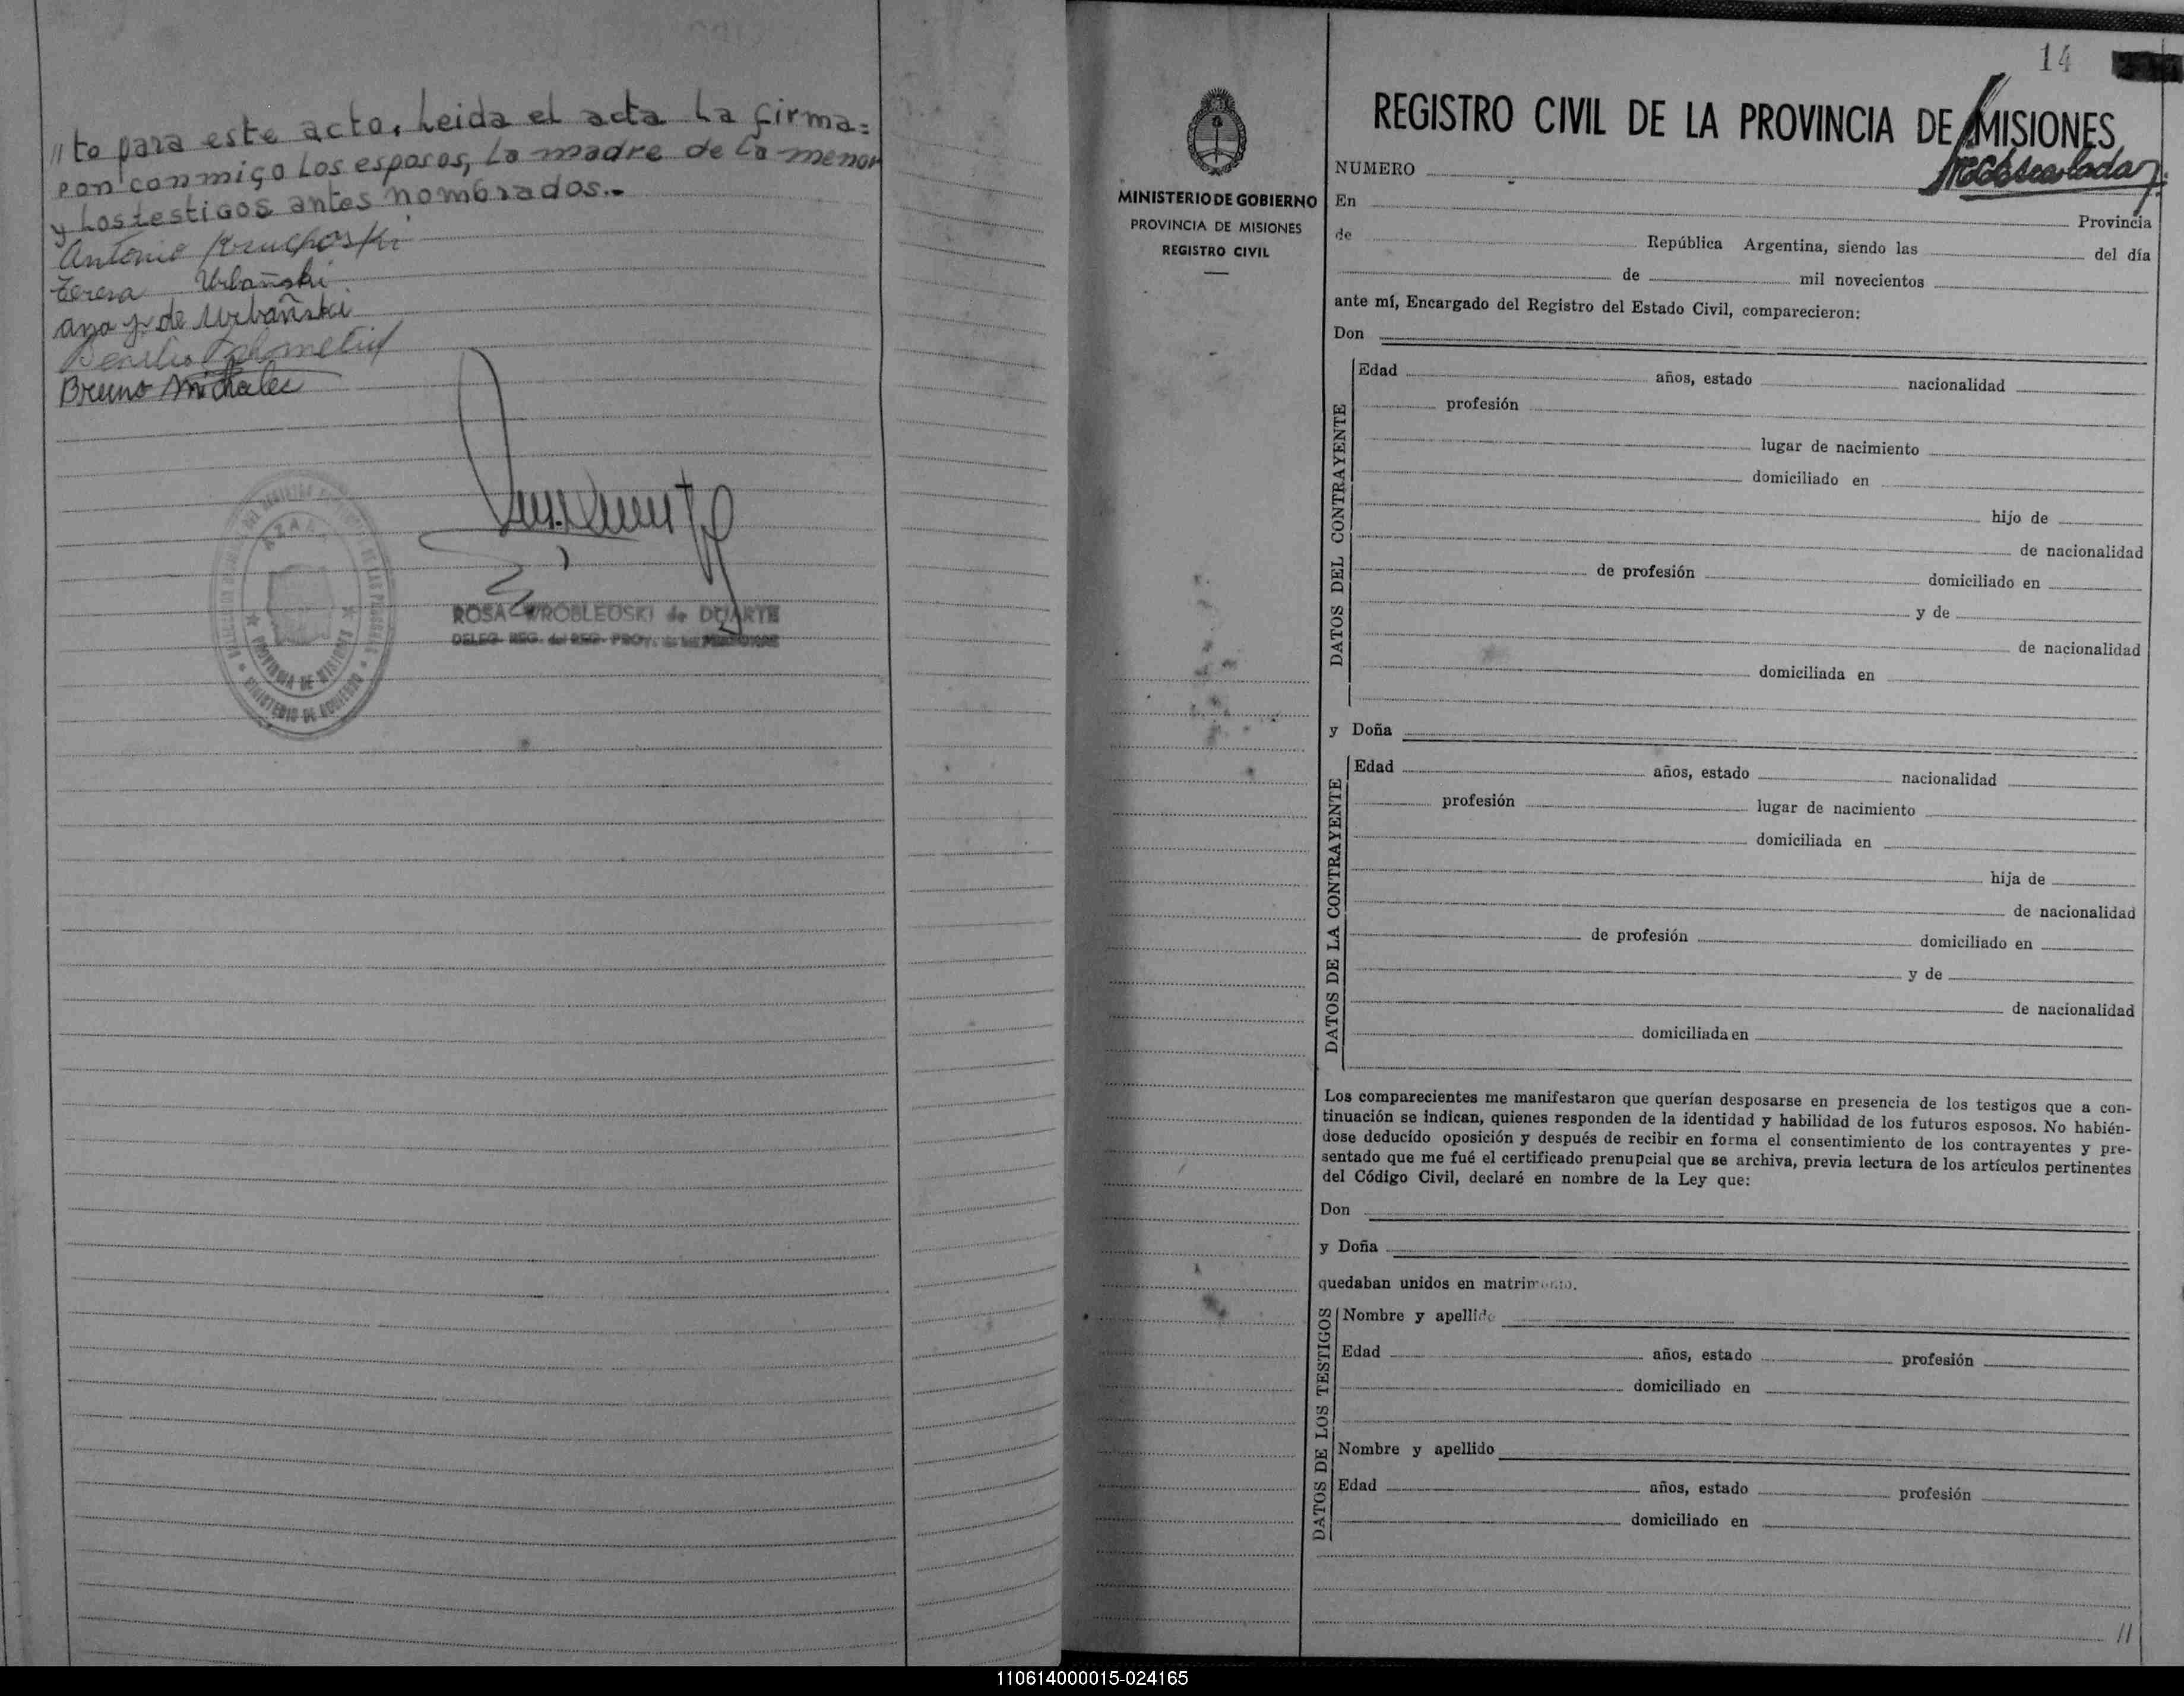 "to para este acto. Leida el acta la firma=
ron conmigo los esposos, la madre de la menor
y los testigos antes nombrados.-
Antonio
Teresa Urbañski
Ana J. de Urbañski
Bruno Michalec
AZARA
PROVINCIA DE MISIONES
MINISTERIO DE GOBIERNO
ROSA WROBLEUSKI de DUARTE
DELEG. REG. del REG. PROV. de las PERSONAS
14
MINISTERIO DE GOBIERNO
PROVINCIA DE MISIONES
REGISTRO CIVIL
REGISTRO CIVIL DE LA PROVINCIA DE MISIONES
NUMERO
En Provincia
de República Argentina, siendo las del día
de mil novecientos
ante mí, Encargado del Registro del Estado Civil, comparecieron:
Don
DATOS DEL CONTRAYENTE
Edad años, estado nacionalidad
profesión
lugar de nacimiento
domiciliado en
hijo de
de nacionalidad
de profesión domiciliado en
y de
de nacionalidad
domiciliada en
y Doña
DATOS DE LA CONTRAYENTE
Edad años, estado nacionalidad
profesión lugar de nacimiento
domiciliada en
hija de
de nacionalidad
de profesión domiciliado en
y de
de nacionalidad
domiciliada en
Los comparecientes me manifestaron que querían desposarse en presencia de los testigos que a con-
tinuación se indican, quienes responden de la identidad y habilidad de los futuros esposos. No habién-
dose deducido oposición y después de recibir en forma el consentimiento de los contrayentes y pre-
sentado que me fué el certificado prenupcial que se archiva, previa lectura de los artículos pertinentes
del Código Civil, declaré en nombre de la Ley que:
Don
y Doña
quedaban unidos en matrimonio.
DATOS DE LOS TESTIGOS
Nombre y apellido
Edad años, estado profesión
domiciliado en
Nombre y apellido
Edad años, estado profesión
domiciliado en
//
110614000015-024165